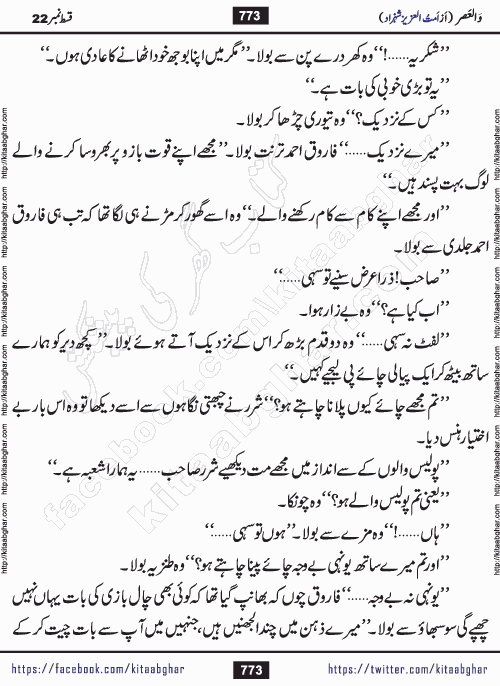 وَالعَصر (اَز اَمتُ العزیز شہزاد) 773 قسط نمبر 22
”شکریہ......!“ وہ کھردرے پن سے بولا۔ ”مگر میں اپنا بوجھ خود اٹھانے کا عادی ہوں۔“
”یہ تو بڑی خوبی کی بات ہے۔“
”کس کے نزدیک؟“ وہ تیوری چڑھا کر بولا۔
”میرے نزدیک......“ فاروق احمد ترنت بولا۔ ”مجھے اپنے قوت بازو پر بھروسا کرنے والے
لوگ بہت پسند ہیں۔“
”اور مجھے اپنے کام سے کام رکھنے والے۔“ وہ اسے گھور کر مڑنے ہی لگا تھا کہ تب ہی فاروق
احمد جلدی سے بولا۔
”صاحب! ذرا عرض سنیے تو سہی......“
”اب کیا ہے؟“ وہ بے زار ہوا۔
”لفٹ نہ سہی......“ وہ دو قدم بڑھ کر اس کے نزدیک آتے ہوئے بولا۔ ”کچھ دیر کو ہمارے
ساتھ بیٹھ کر ایک پیالی چائے پی لیجیے کہیں۔“
”تم مجھے چائے کیوں پلانا چاہتے ہو؟“ شرر نے چبھتی نگاہوں سے اسے دیکھا تو وہ اس بار بے
اختیار ہنس دیا۔
”پولیس والوں کے سے انداز میں مجھے مت دیکھیے شرر صاحب...... یہ ہمارا شعبہ ہے۔“
”یعنی تم پولیس والے ہو؟“ وہ چونکا۔
”ہاں......!“ وہ مزے سے بولا۔ ”ہوں تو سہی......“
”اور تم میرے ساتھ یونہی بے وجہ چائے پینا چاہتے ہو؟“ وہ طنزیہ بولا۔
”یونہی نہ بے وجہ......“ فاروق چوں کہ بھانپ گیا تھا کہ کوئی بھی چال بازی کی بات یہاں نہیں
چھپے گی سو سبھاؤ سے بولا۔ ”میرے ذہن میں چند الجھنیں ہیں، جنہیں میں آپ سے بات چیت کر کے
https://facebook.com/kitaabghar 773 https://twitter.com/kitaabghar
http://kitaabghar.com http://kitaabghar.com http://kitaabghar.com http://kitaabghar.com
http://kitaabghar.com http://kitaabghar.com http://kitaabghar.com http://kitaabghar.com
کتاب گھر کی پیشکش
facebook.com/kitaabghar
kitaabghar.com